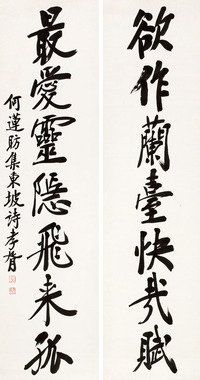 欲作蘭臺快哉賦
最愛靈隱飛来孤
何蓮昉集東坡詩孝胥